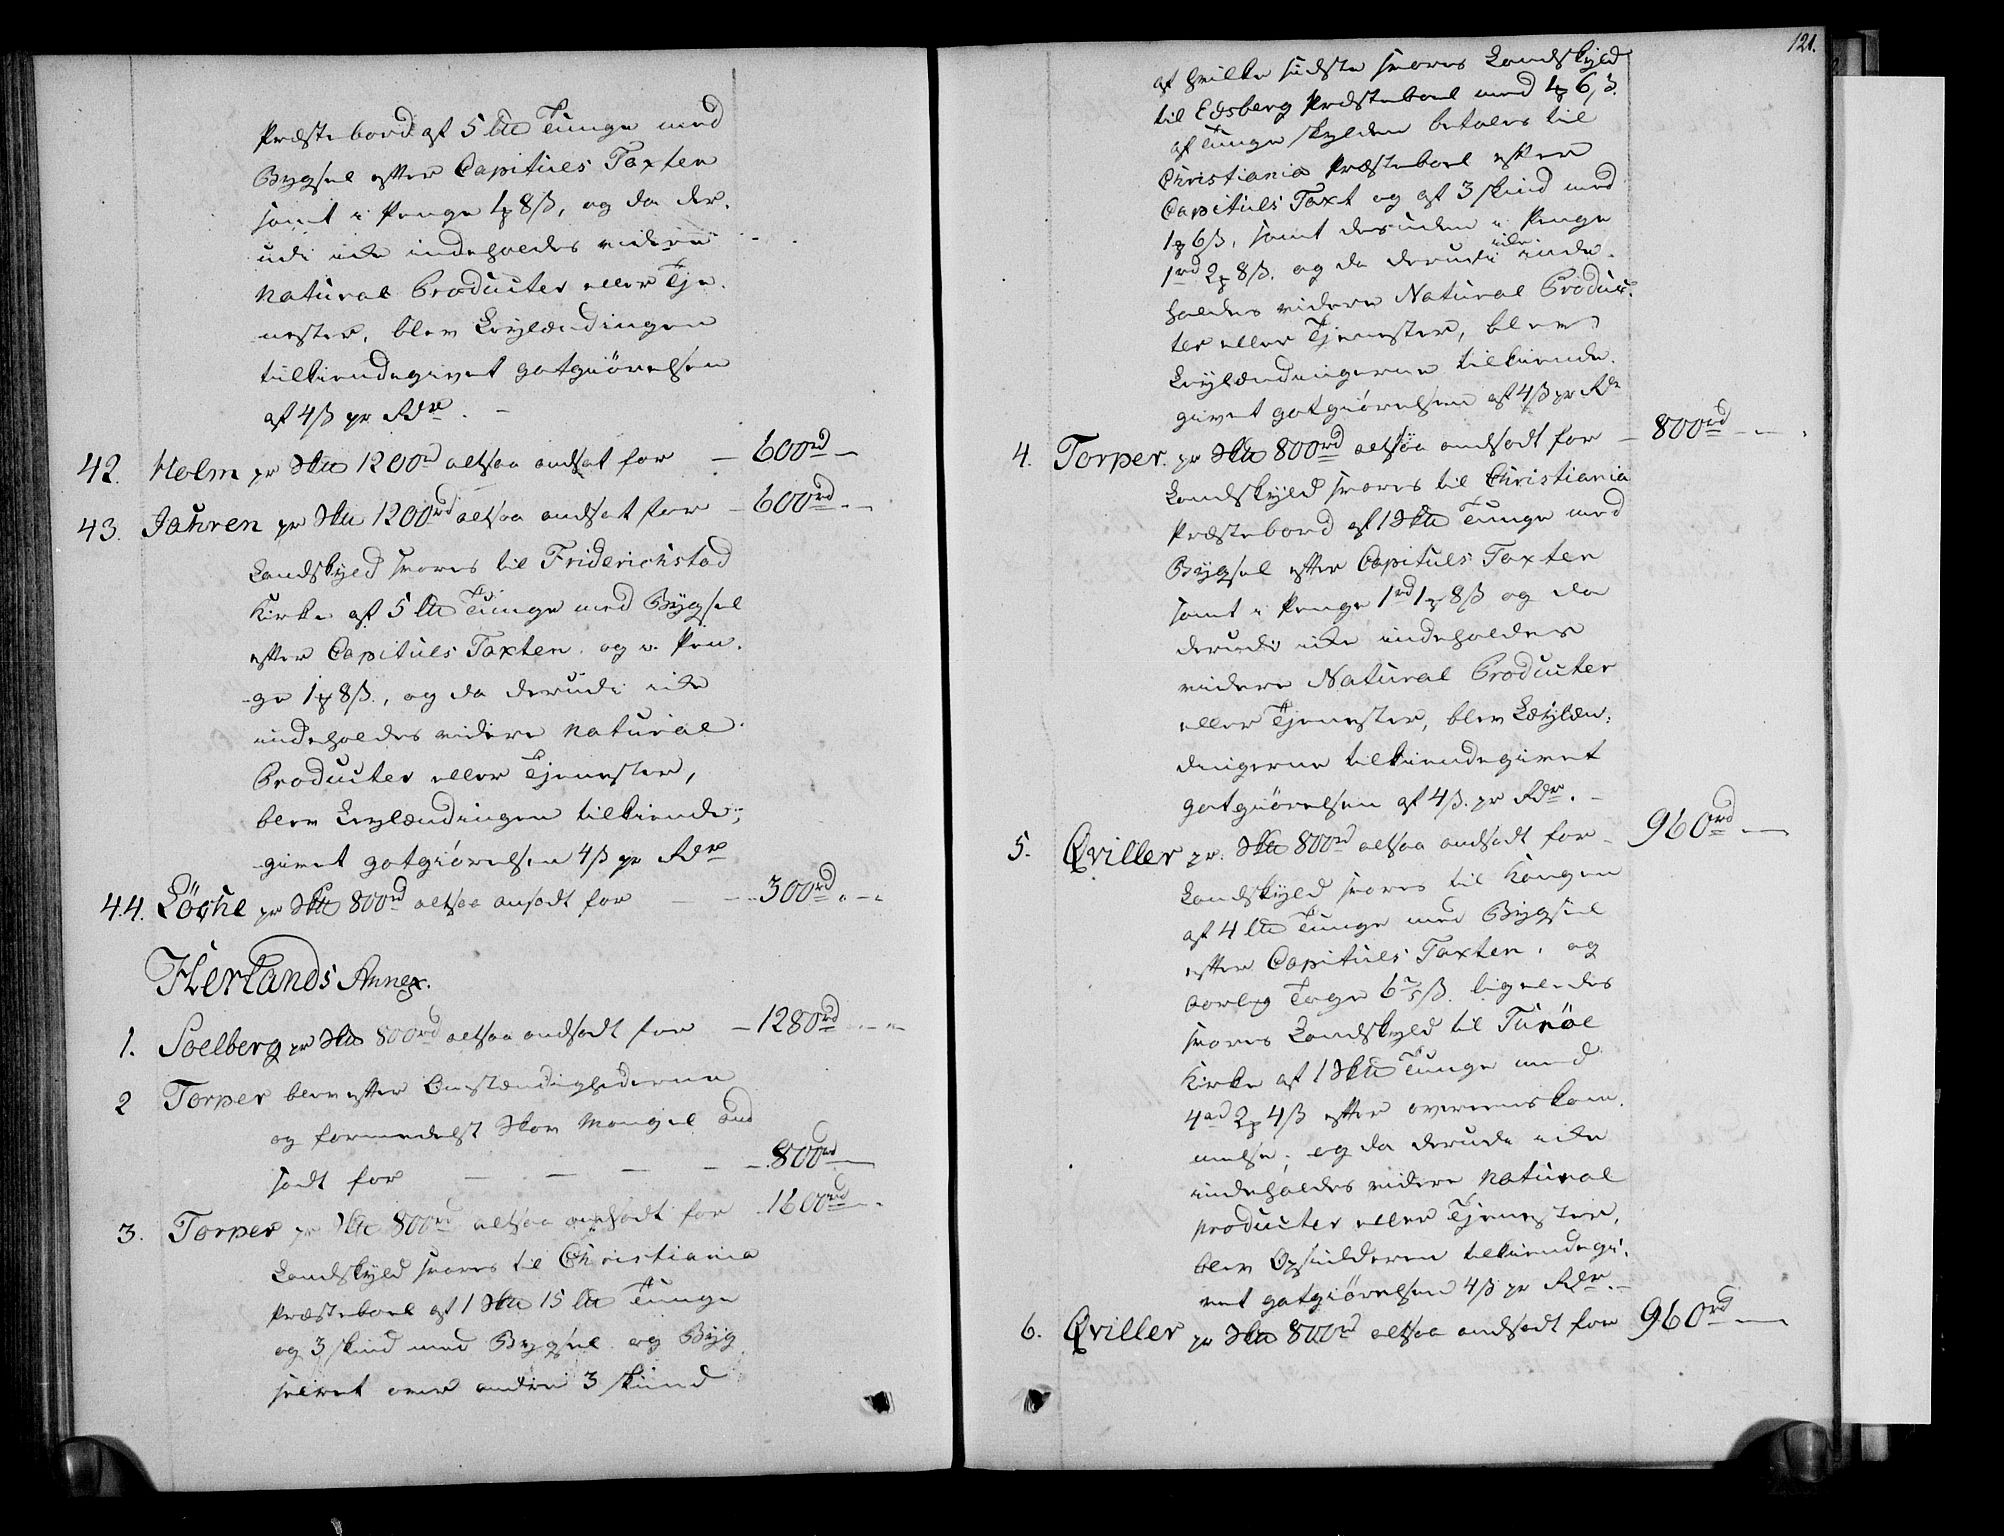 Præstebord af 5 L℔ Tunge med
Bygsel efter Capituls Taxten
samt i Penge 1 ₰ 8 ß, og da der.
udi ikke indeholdes videre
Natural Producter eller Tje.
nester, blev Leylændingen
tilkiendegivet gotgiørelsen
af 4 ß pr Rdr. –
42. Holm pr Sk℔ 1200rd altsaa andsat for – 600rd –
43. Jahren pr Sk℔ 1200rd altsaa andsat for – 600rd. –
Landskyld svares til Friderichstad
Kirke af 5 L℔ Tunge med Bÿgsel
efter Capituls Taxten. og i Pen.
ge 1 ₰ 8 ß., og da derudi ikke
indeholdes videre Natural
Producter eller Tjenester,
blev Leylændingen tilkiende,
givet gotgiørelsen 4 ß pr Rdr
44. Löche pr Sk℔ 800rd altsaa ansadt for – – 300rd. –
Herlands Annex.
1. Soelberg pr Sk℔ 800rd altsaa andsadt for – 1280rd. –
2 Torper blev efter Omstændighederne
og formedelst Skov Mangel and
sadt for – – – – 800rd –
3. Torper pr Sk℔ 800rd altsaa andsadt for 1600rd –
Landskyld svares til Christiania
Præsteboel af 1 Sk℔ 15 L℔ Tunge
og 3 skind med Bygsel og Byg
selret over andre 3 skind
121.
af hvilke sidste svares Landskyld
til Edsberg Præsteboel med 1 ₰ 6 ß.
af Tunge skylden betales til
Christiania Præsteboel efter
Capituls Taxt og af 3 skind med
1 ₰ 6 ß, samt desuden i Penge
1rd 2 ₰ 8 ß. og da derudi ikke inde.
holdes videre Natural Produc.
ter eller Tjenester, blev
Leylændingerne tilkiende.
givet gotgiørelsen af 4 ß pr Rdr
4. Torper. pr Sk℔ 800rd altsaa andsadt for – 800rd – –
Landskyld svares til Christiania
Præstebord af 1 Sk℔ Tunge med
Bÿgsel efter Capituls Taxten
samt i Penge 1rd 1 ₰ 8 ß og da
derudi ikke indeholdes
videre Natural Producter
eller Tjenester, blev Leÿlæn,
dingerne tilkiendegivet
gotgiørelsen af 4 ß. pr Rdr. –
5. Qviller pr. Sk℔ 800rd altsaa andsadt for – 960rd –
Landskyld svares til Kongen
af 4 L℔ Tunge med Bygsel
efter Capituls Taxten, og
aarlig Tage 6 ß. ligeledes
svares Landskyld til Tunöe
Kirke af 1 Sk℔ Tunge med
4rd 2 ₰ 4 ß efter overenskom.
melse, og da derudi ikke
indeholdes videre Natural
producter eller Tjenester,
blev Opsidderen tilkiendegi.
vet gotgiörelsen 4 ß pr Rdr. –
6. Qviller pr Sk℔ 800rd altsaa andsadt for 960rd –